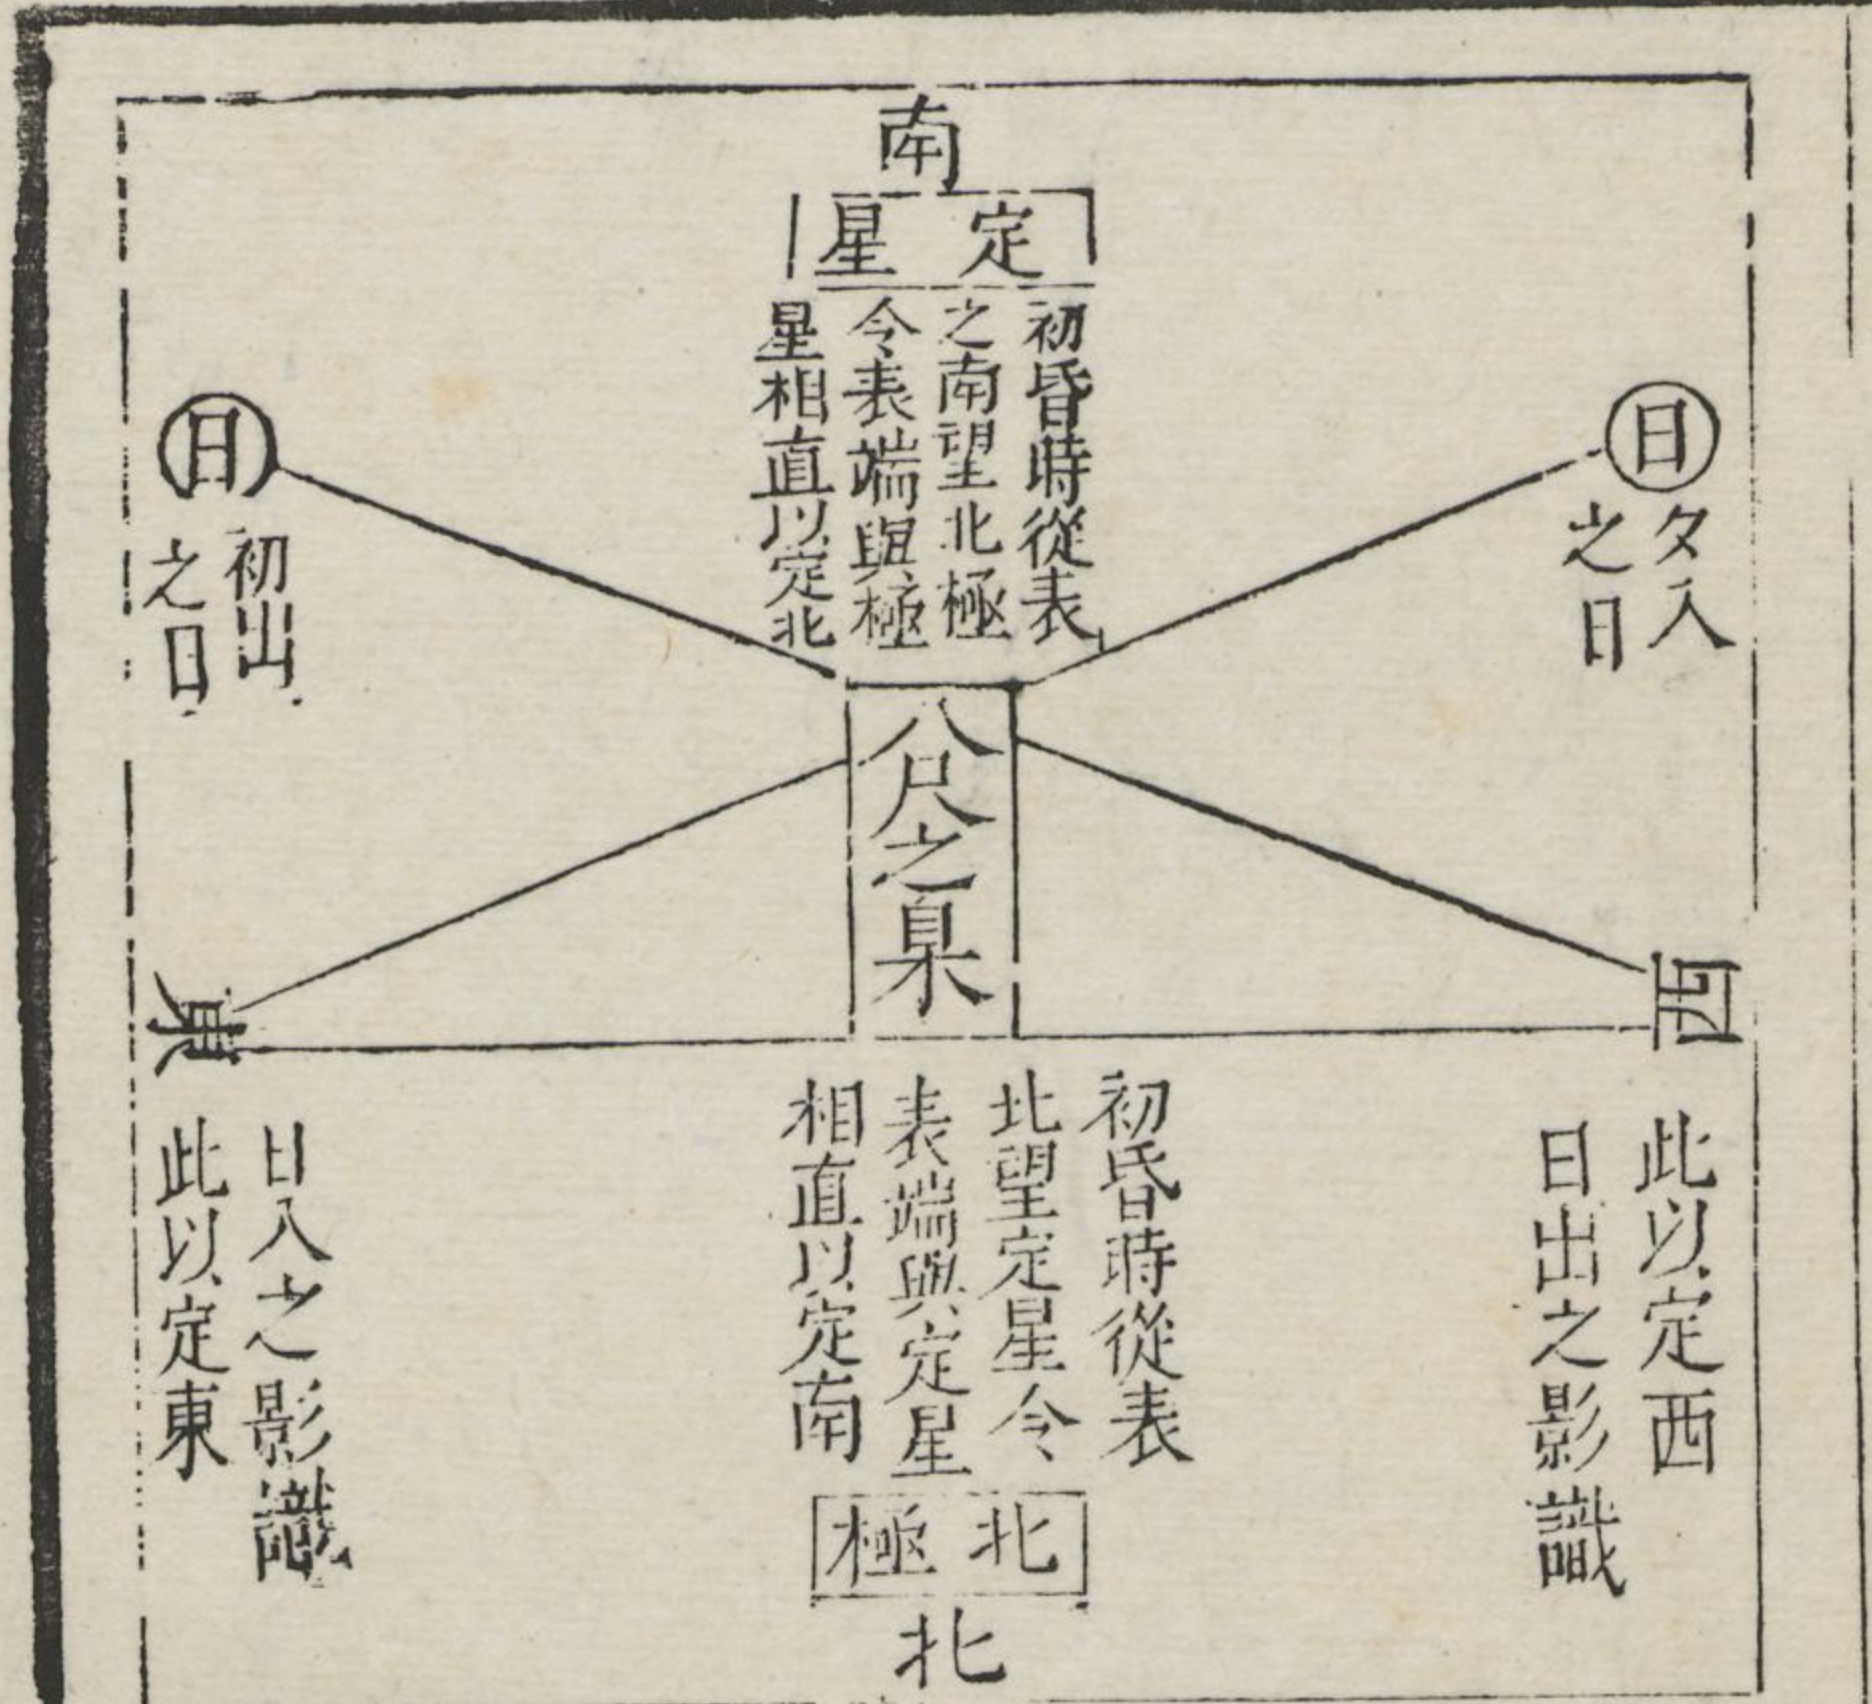 南
定星
初昏時從表
之南望北極
令表端與極
星相直以定北
日
夕入
之日
日
初出
之日
八尺之臬
西
東
此以定西
日出之影識
初昏時從表
北望定星令
表端與定星
相直以定南
日入之影識
此以定東
北極
北